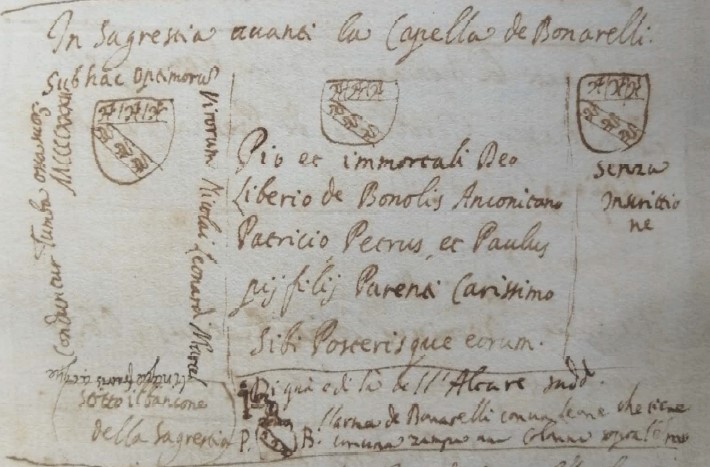 In Sagrestia auanti la Capella de Bonarelli.
Sub hac Optimorum
Virorum Nicolai Leonardi
Conduntur Tumba
Pio et immortali Deo
Liberio de Bonolis Anconitano
Patricio Petrus, et Paulus
pij filij Parenti Carissimo
Sibi Posterisque eorum.
senza
Inscrittio
ne
sotto il bancone
della Sagrestia
Di quà e di là dell'Altare sudd.
P. B.
l'arma de Bonarelli con un leone che tiene
con una zampa una Colonna sopra